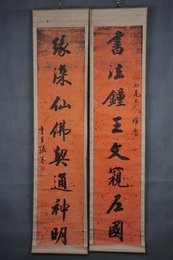 書法鐘王文窺左國
緣深仙佛契通神明